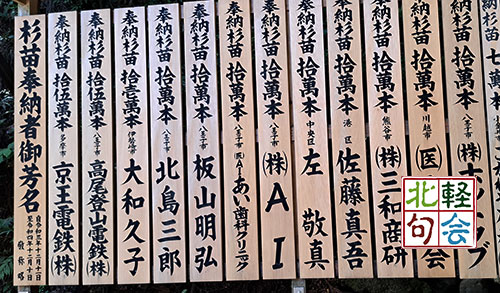 杉苗奉納者御芳名
自令和三年十二月十一日
至令和四年十二月十日
敬称略
奉納杉苗 拾伍萬本 多摩市 京王電鉄㈱
奉納杉苗 拾伍萬本 八王子市 高尾登山電鉄㈱
奉納杉苗 拾壱萬本 伊勢崎市 大和久子
奉納杉苗 拾萬本 八王子市 北島三郎
奉納杉苗 拾萬本 八王子市 板山明弘
奉納杉苗 拾萬本 八王子市 あい歯科クリニック
奉納杉苗 拾萬本 八王子市 ㈱AI
奉納杉苗 拾萬本 中央区 左 敬真
奉納杉苗 拾萬本 港区 佐藤真吾
奉納杉苗 拾萬本 熊谷市 ㈱三和商研
奉納杉苗 拾萬本 川越市 (医) 会
奉納杉苗 拾萬本 八王子市 ㈱
北軽
句会